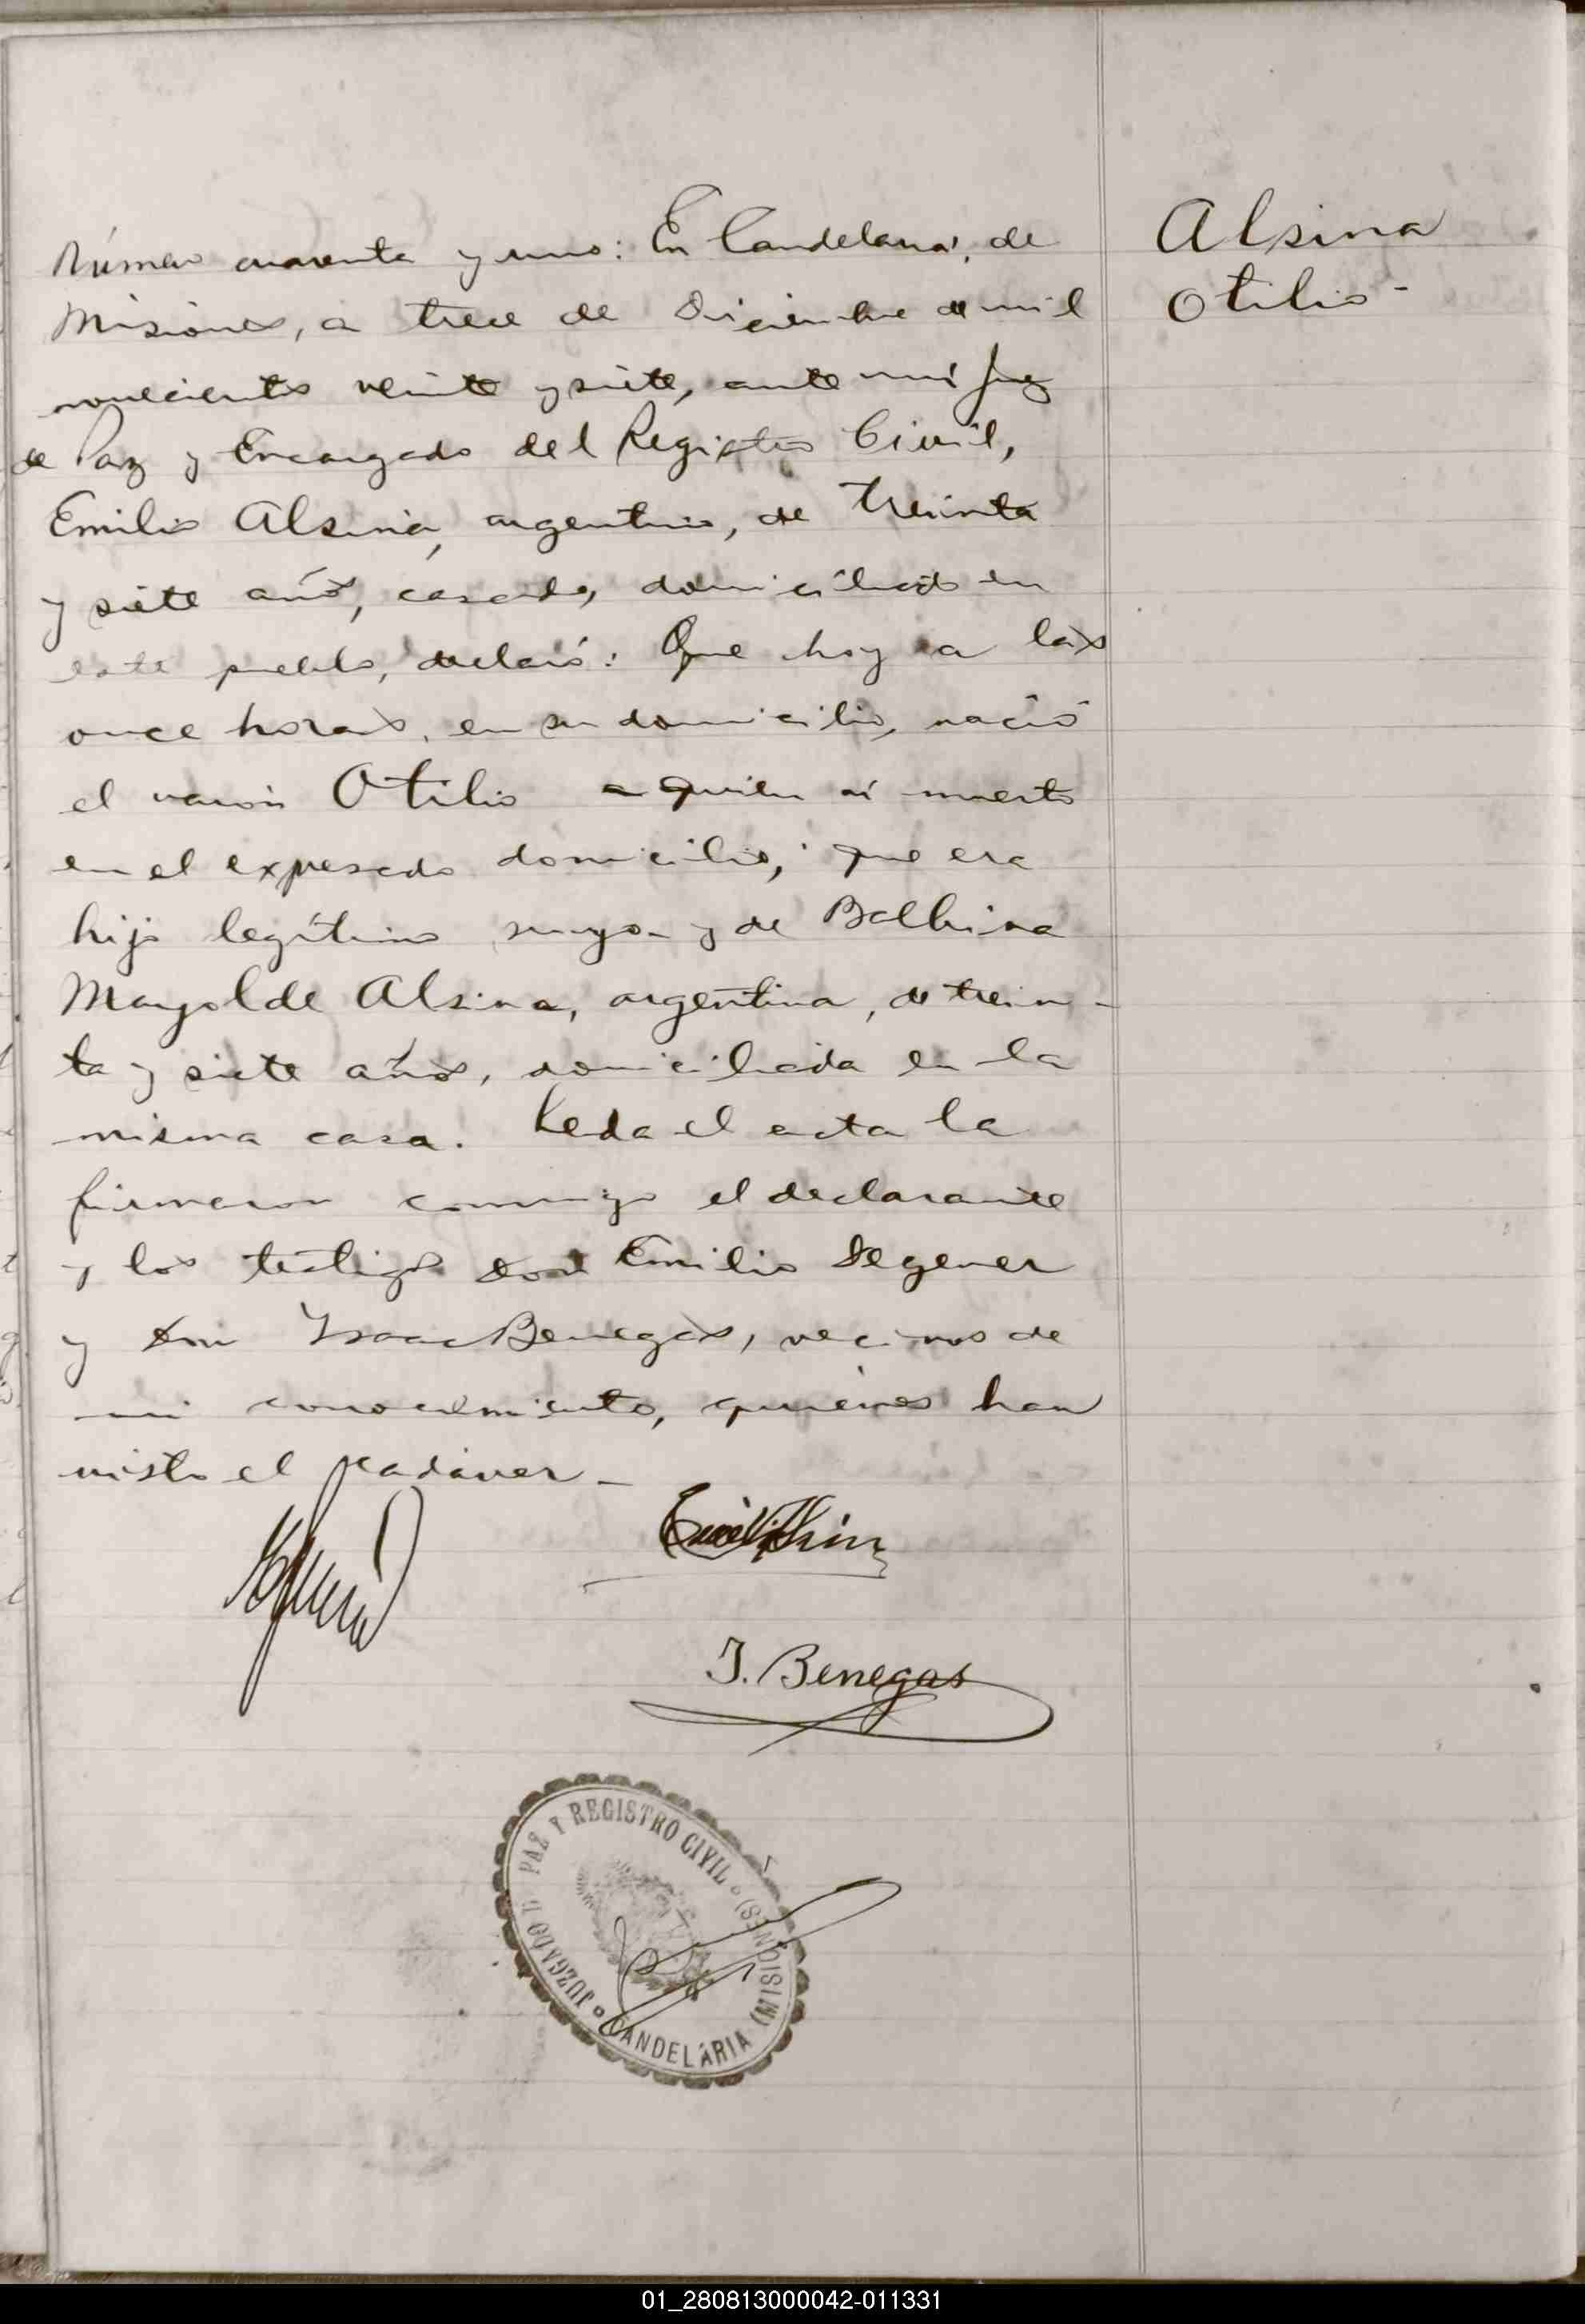 Número cuarenta y uno: En Candelaria, de
Misiones, a trece de Diciembre de mil
novecientos veinte y siete, ante mí Juez
de Paz y Encargado del Registro Civil,
Emilio Alsina, argentino, de treinta
y siete años, casado, domiciliado en
este pueblo, declaró: Que hoy a las
once horas, en su domicilio, nació
el varón Otilio a quien ví muerto
en el expresado domicilio; que era
hijo legítimo suyo y de Balbina
Mayol de Alsina, argentina, de trein-
ta y siete años, domiciliada en la
misma casa. Leda el acta la
firmaron conmigo el declarante
y los testigos don Emilio Degener
y don Isaac Benegas, vecinos de
mi conocimiento, quienes han
visto el cadáver-
Alsina
Otilio-
Emilio Alsina
I. Benegas
JUZGADO DE PAZ Y REGISTRO CIVIL
CANDELARIA (MISIONES)
01_280813000042-011331